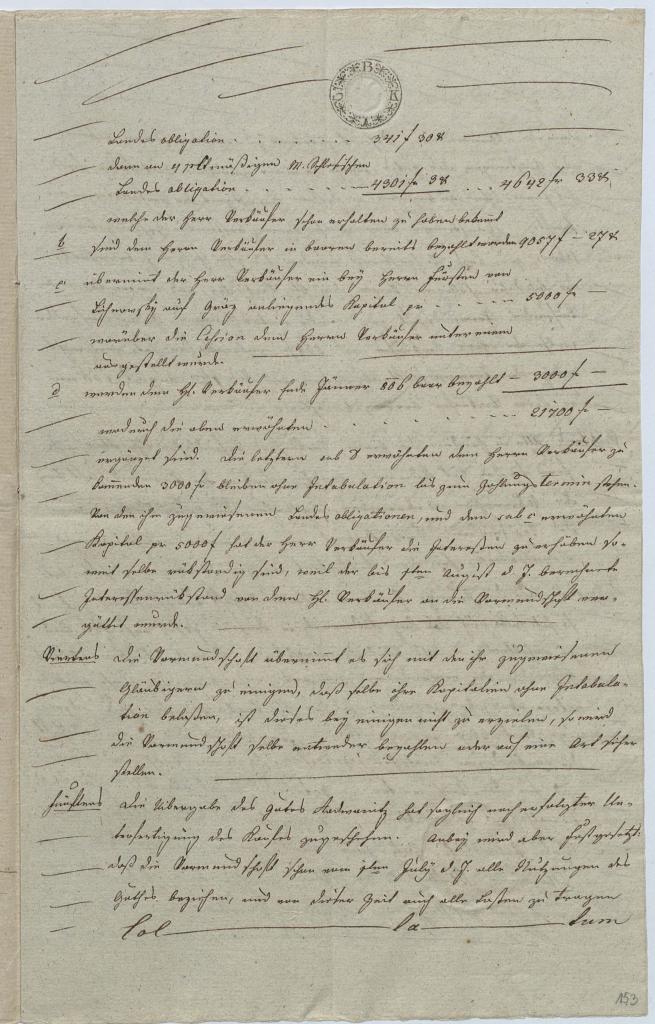 Landes obligation . . . . . . . 341 f 30 x
dann an 4 pctmäßigen M. Schlesischen
Landes obligation . . . . . 4301 f 3 x . . . 4642 f 33 x
welche der Herr Verkäufer schon erhalten zu haben bekennt
b sind dem Herrn Verkäufer in baaren bereits bezahlt worden 9057 f – 27 x
c übernimt der Herr Verkäufer ein bey Herrn Fürsten von
Lichnowsky auf Gräz anliegendes Kapital pr . . . . 5000 f –
worüber die Cession dem Herrn Verkäufer unter einem
ausgestellt wurde.
d werden dem H. Verkäufer Ende Jänner 806 baar bezahlt – 3000 f –
wodurch die oben erwähnten . . . . . . 21700 f –
ergänzet sind. Die letztern sub d erwähnten dem Herrn Verkäufer zu
kommenden 3000 f bleiben ohne Intabulation bis zum Zahlungs termin stehen.
Von den ihm zugewiesenen Landes obligationen, und dem sub c erwähnten
Kapital pr 5000 f hat der Herr Verkäufer die Interessen zu erheben so-
weit selbe rükständig sind, weil der bis 1ten August d. J. berechnete
Interessenrükstand von dem H. Verkäufer an die Vormundschaft ver-
güttet wurde.
Viertens Die Vormundschaft übernimmt es sich mit den ihr zugewiesenen
Gläubigern zu einigen, daß selbe ihre Kapitalien ohne Intabula-
tion belaßen, ist dieses bey einigen nicht zu erzielen, so wird
die Vormundschaft selbe entweder bezahlen oder auf eine Art sicher
stellen.
Fünftens Die Übergabe des Gutes Radwanitz hat sogleich nach erfolgter Un-
terfertigung des Kaufes zu geschehen. Anbey wird aber festgesetzt:
daß die Vormundschaft schon vom 1ten July d. J. alle Nutzungen des
Guthes beziehen, und von dieser Zeit auch alle Lasten zu tragen
Sal la tum
153